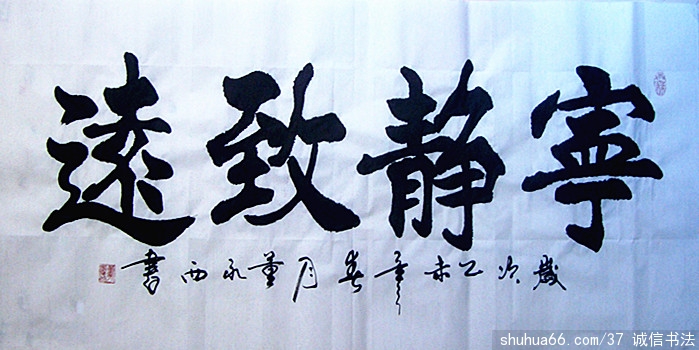 寧靜致遠
歲次乙未年春月董永西書
shuhua66.com/37 诚信书法